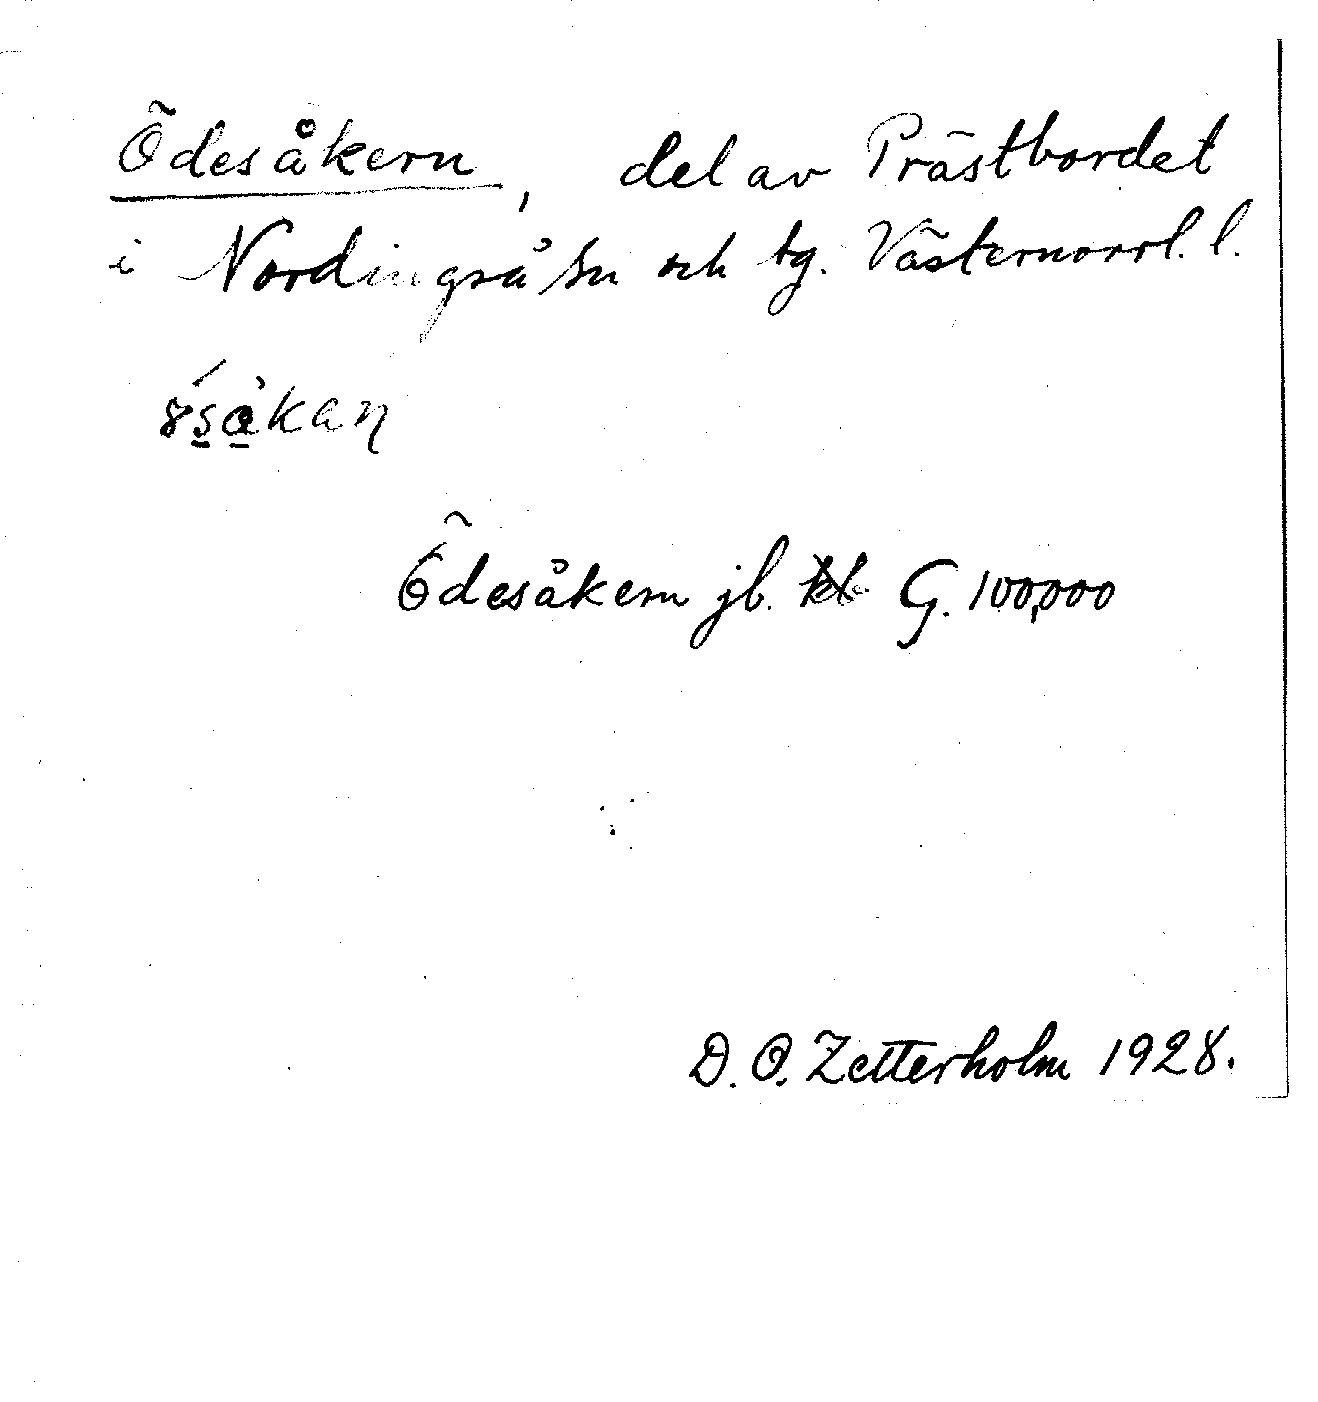 Ödesåkern, del av Prästbordet
i Nordingrå sn och tg. Västernorrl. l.
Ödesåkern jb. G. 100,000
D. O. Zetterholm 1928.